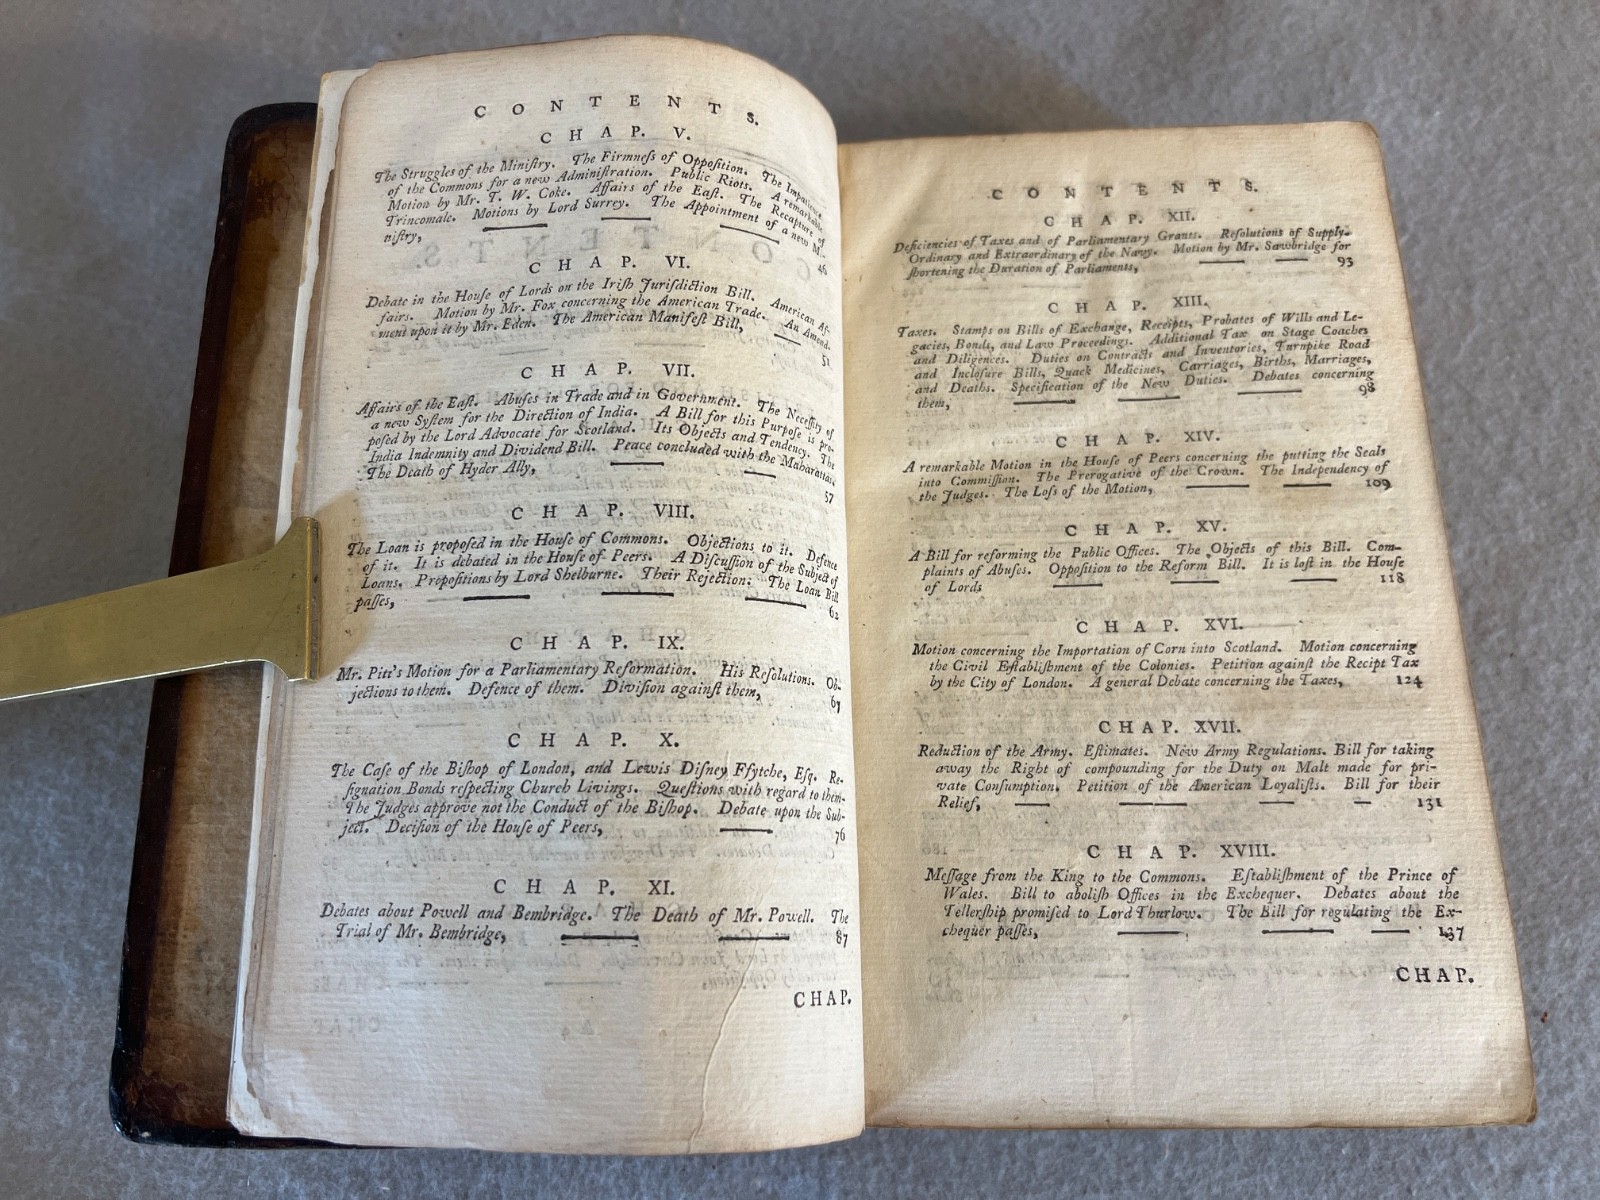 CONTENTS.
CHAP. V.
The Struggles of the Miniſtry. The Firmneſs of Oppoſition. The Impatience
of the Commons for a new Adminiſtration. Public Riots. A remarkable
Motion by Mr. T. W. Coke. Affairs of the Eaſt. The Recapture of
Trincomale. Motions by Lord Surrey. The Appointment of a new Mi-
niſtry, 46
CHAP. VI.
Debate in the Houſe of Lords on the Iriſh Juriſdiction Bill. American Af-
fairs. Motion by Mr. Fox concerning the American Trade. An Amend-
ment upon it by Mr. Eden. The American Manifeſt Bill, 51
CHAP. VII.
Affairs of the Eaſt. Abuſes in Trade and in Government. The Neceſſity of
a new Syſtem for the Direction of India. A Bill for this Purpoſe is pro-
poſed by the Lord Advocate for Scotland. Its Objects and Tendency. The
India Indemnity and Dividend Bill. Peace concluded with the Maharattas.
The Death of Hyder Ally, 57
CHAP. VIII.
The Loan is propoſed in the Houſe of Commons. Objections to it. Defence
of it. It is debated in the Houſe of Peers. A Diſcuſſion of the Subject of
Loans. Propoſitions by Lord Shelburne. Their Rejection: The Loan Bill
paſſes, 62
CHAP. IX.
Mr. Pitt's Motion for a Parliamentary Reformation. His Reſolutions. Ob-
jections to them. Defence of them. Diviſion againſt them, 67
CHAP. X.
The Caſe of the Biſhop of London, and Lewis Diſney Ffytche, Eſq. Re-
ſignation Bonds reſpecting Church Livings. Queſtions with regard to them.
The Judges approve not the Conduct of the Biſhop. Debate upon the Sub-
ject. Deciſion of the Houſe of Peers, 76
CHAP. XI.
Debates about Powell and Bembridge. The Death of Mr. Powell. The
Trial of Mr. Bembridge, 87
CHAP.
CONTENTS.
CHAP. XII.
Deficiencies of Taxes and of Parliamentary Grants. Reſolutions of Supply.
Ordinary and Extraordinary of the Navy. Motion by Mr. Sawbridge for
ſhortening the Duration of Parliaments, 93
CHAP. XIII.
Taxes. Stamps on Bills of Exchange, Receipts, Probates of Wills and Le-
gacies, Bonds, and Law Proceedings. Additional Tax on Stage Coaches
and Diligences. Duties on Contracts and Inventories, Turnpike Road
and Incloſure Bills, Quack Medicines, Carriages, Births, Marriages,
and Deaths. Specification of the New Duties. Debates concerning
them, 98
CHAP. XIV.
A remarkable Motion in the Houſe of Peers concerning the putting the Seals
into Commiſſion. The Prerogative of the Crown. The Independency of
the Judges. The Loſs of the Motion, 109
CHAP. XV.
A Bill for reforming the Public Offices. The Objects of this Bill. Com-
plaints of Abuſes. Oppoſition to the Reform Bill. It is loſt in the Houſe
of Lords 118
CHAP. XVI.
Motion concerning the Importation of Corn into Scotland. Motion concerning
the Civil Eſtabliſhment of the Colonies. Petition againſt the Recipt Tax
by the City of London. A general Debate concerning the Taxes, 124
CHAP. XVII.
Reduction of the Army. Eſtimates. New Army Regulations. Bill for taking
away the Right of compounding for the Duty on Malt made for pri-
vate Conſumption. Petition of the American Loyaliſts. Bill for their
Relief, 131
CHAP. XVIII.
Meſſage from the King to the Commons. Eſtabliſhment of the Prince of
Wales. Bill to aboliſh Offices in the Exchequer. Debates about the
Tellerſhip promiſed to Lord Thurlow. The Bill for regulating the Ex-
chequer paſſes, 137
CHAP.